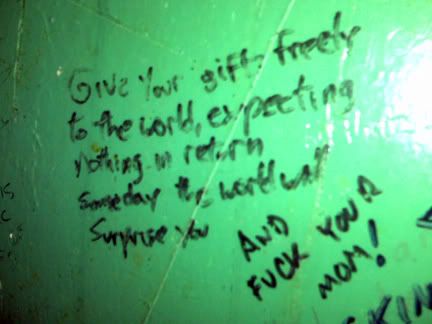 Give Your gifts freely
to the world, expecting
nothing in return
Someday the world will
Surprise you
AND
FUCK YOUR
MOM!